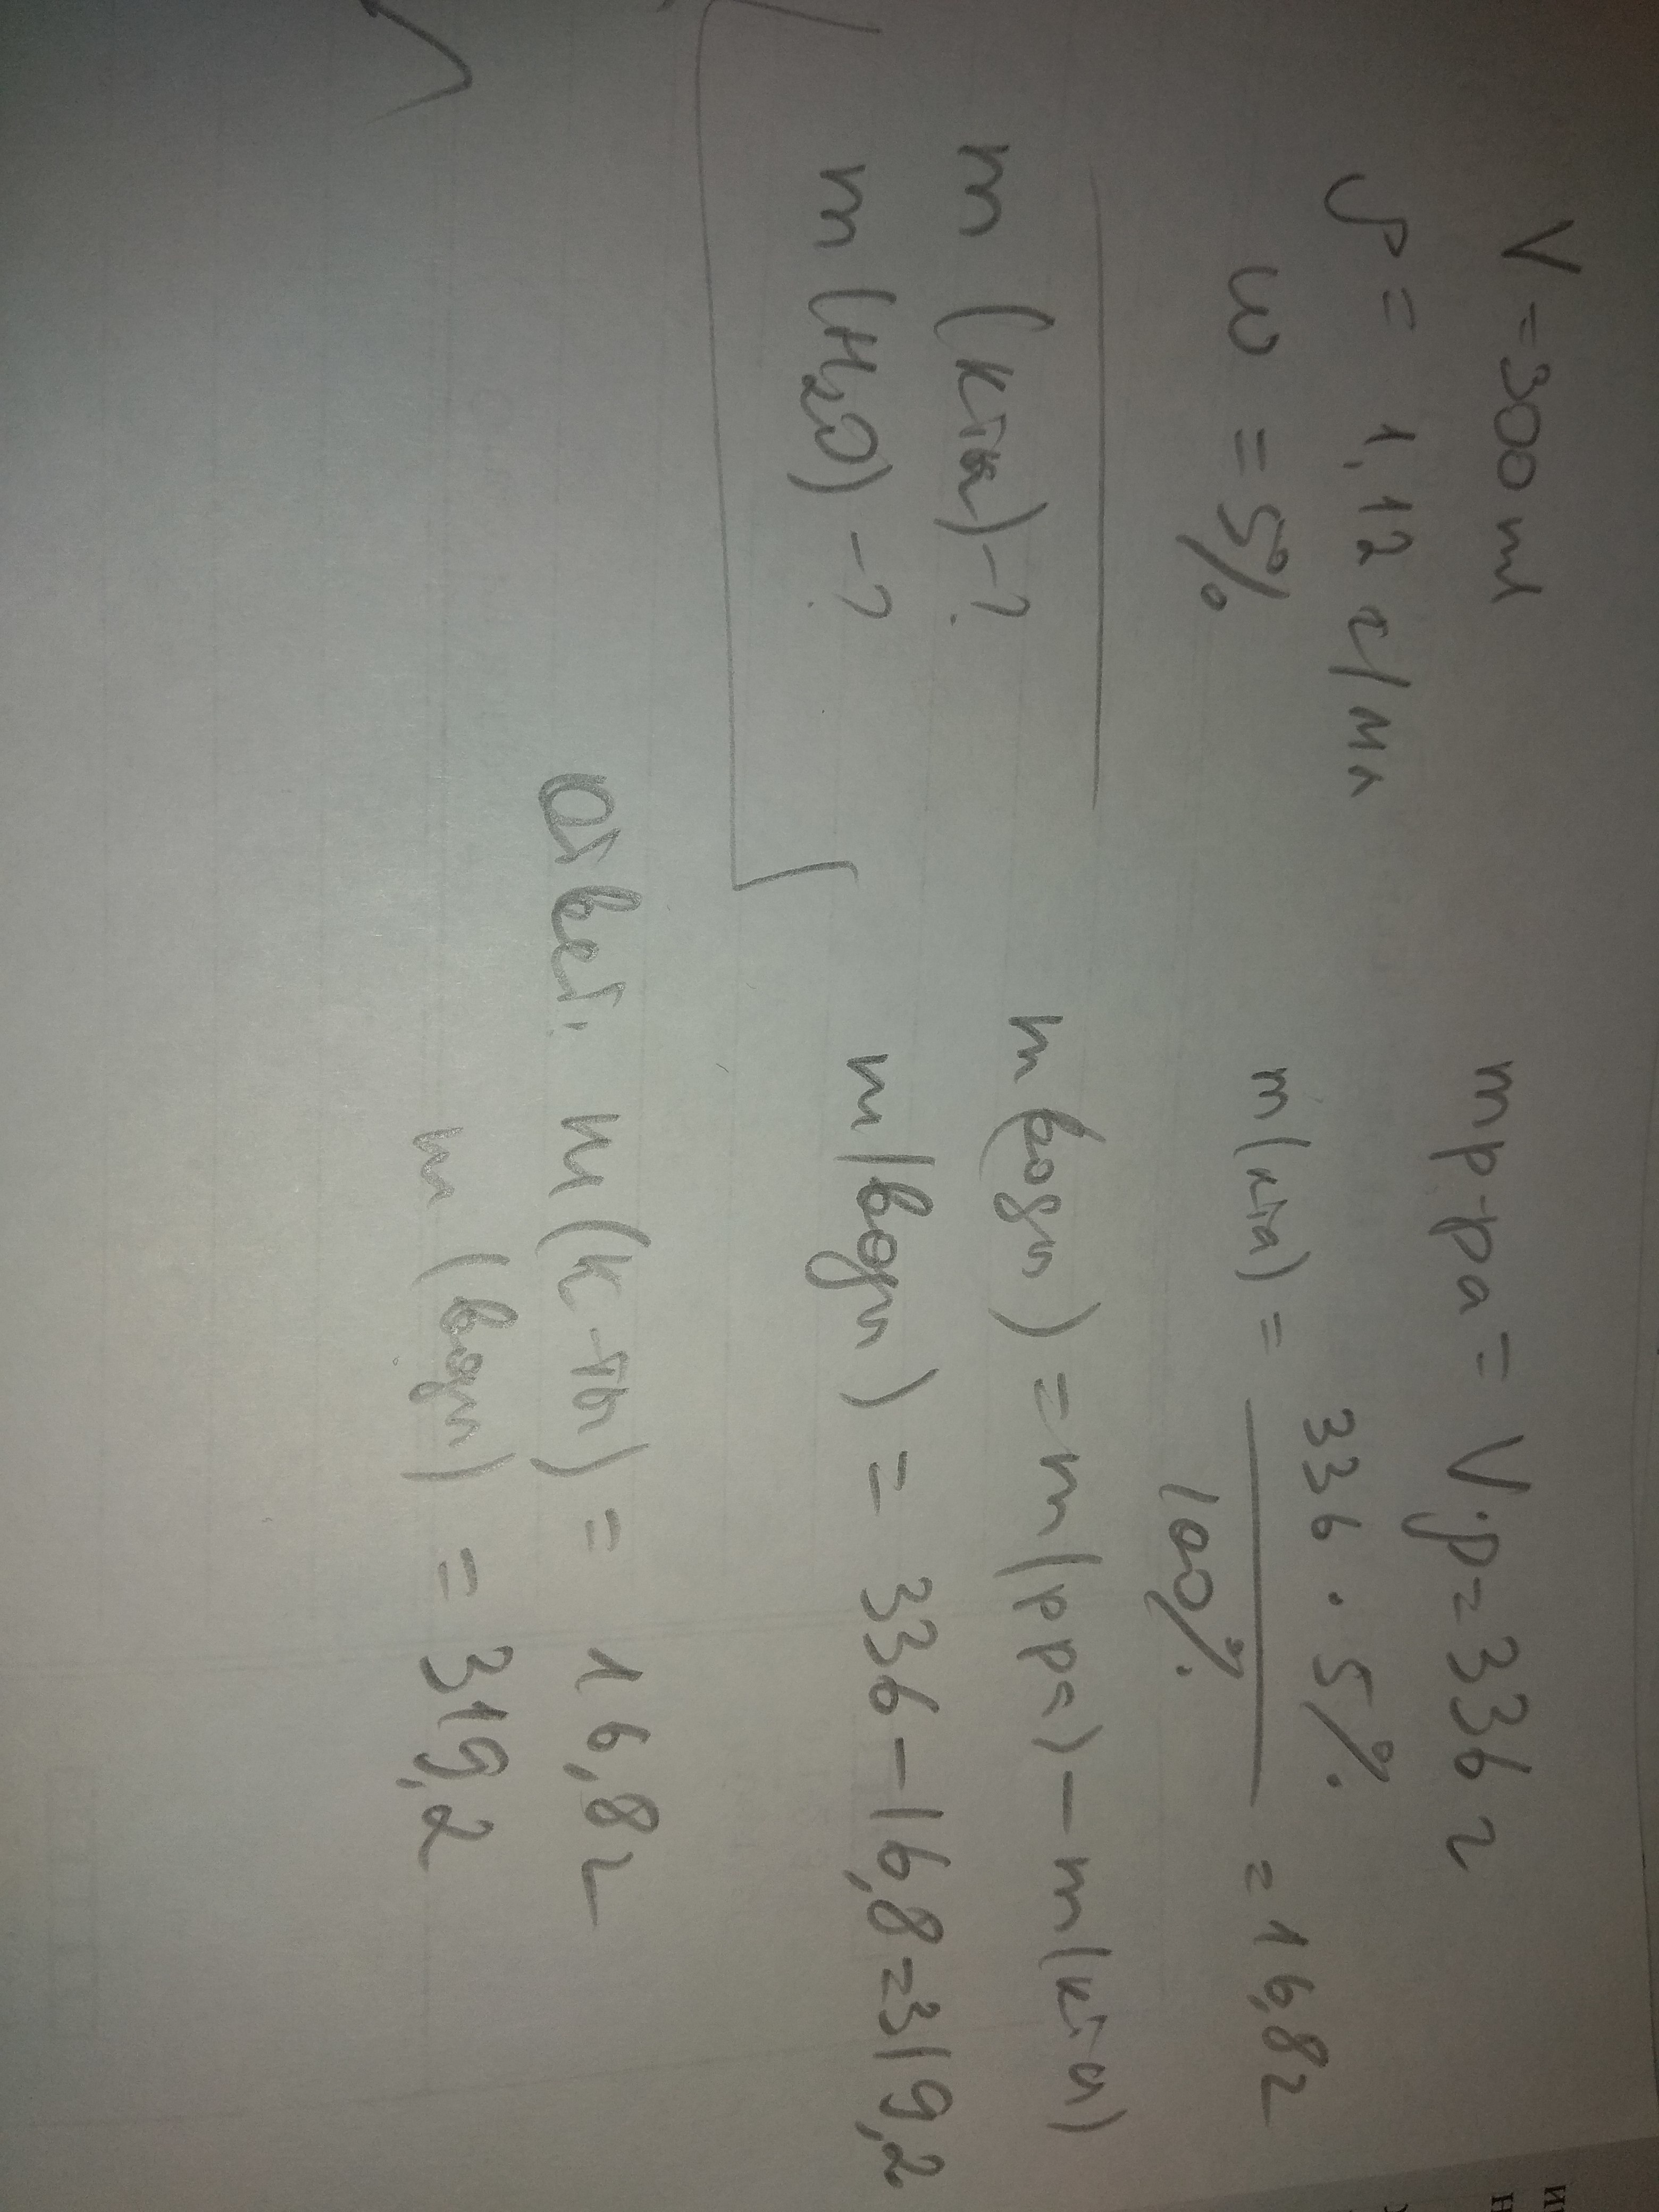 V = 300 мл
ρ = 1,12 г/мл
ω = 5%
m (к-ты) - ?
m (H₂O) - ?
m р-ра = V·ρ = 336 г
m(к-та) = 336 · 5% / 100% = 16,8 г
m (воды) = m(р-ра) - m(к-ты)
m(воды) = 336 - 16,8 = 319,2
Ответ. m (к-ты) = 16,8 г
m (воды) = 319,2